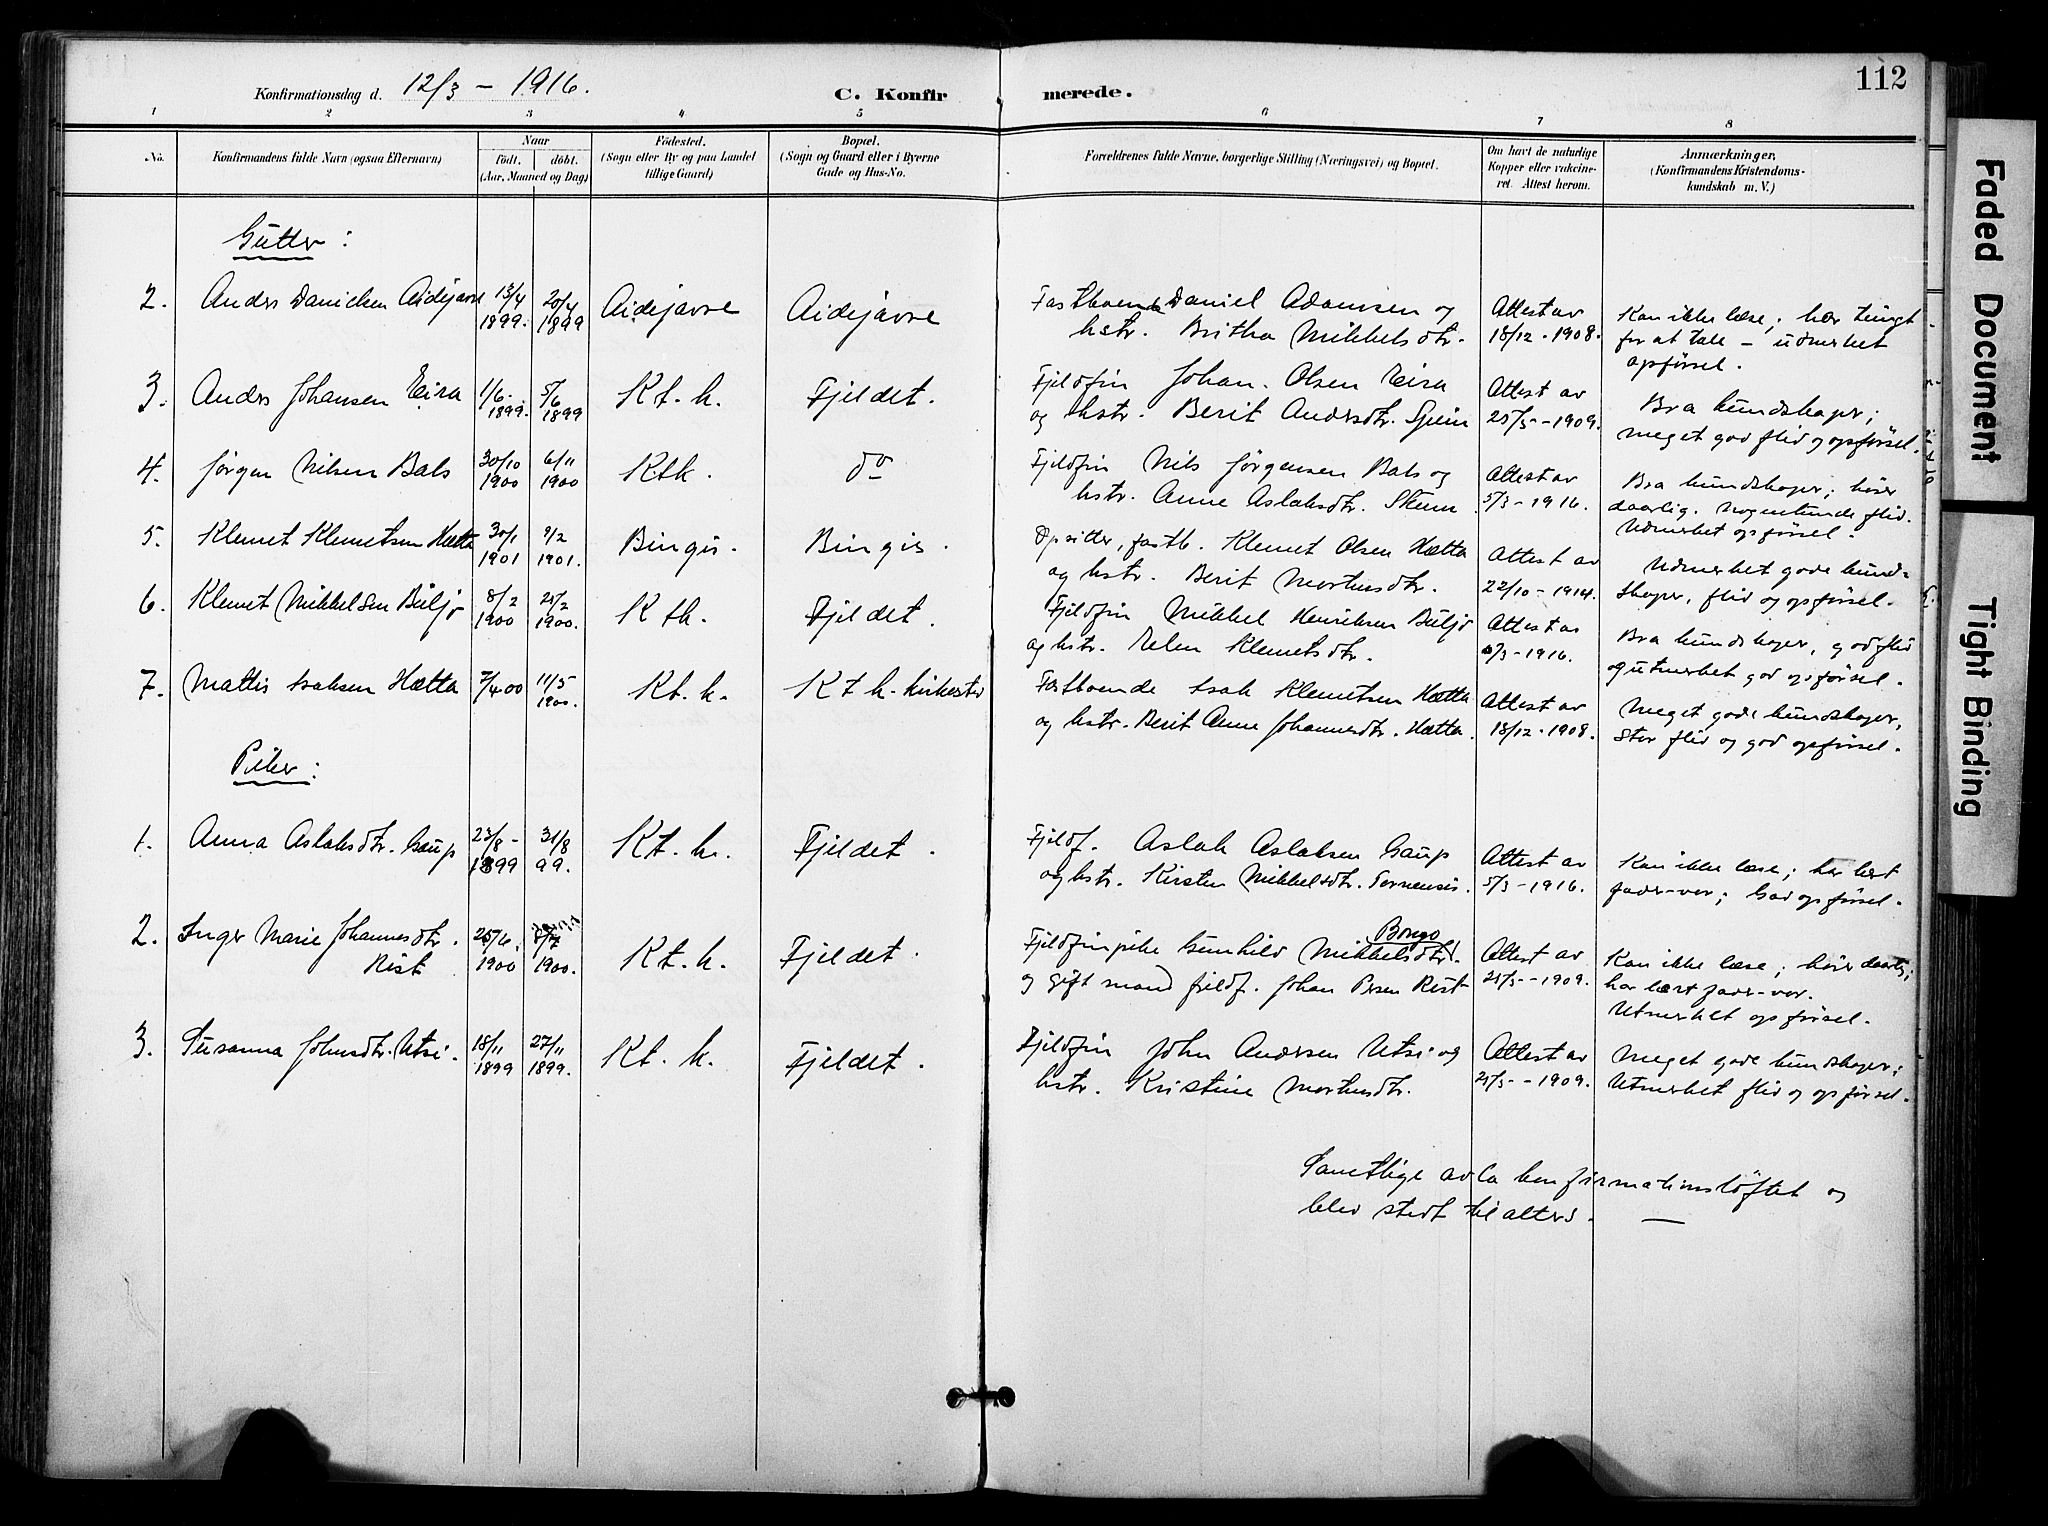 112
Konfirmationsdag d. 12/3 - 1916.
C. Konfirmerede.
1 2 3 4 5 6 7 8
No.
Konfirmandens fulde Navn (ogsaa Efternavn)
Naar
født. døbt.
(Aar, Maaned og Dag)
Fødested.
(Sogn eller By og paa Landet
tillige Gaard)
Bopæl.
(Sogn og Gaard eller i Byerne
Gade og Hus-No.
Forældrenes fulde Navne, borgerlige Stilling (Næringsvei) og Bopæl.
Om havt de naturlige
Kopper eller vakcine-
ret. Attest herom.
Anmærkninger,
(Konfirmandens Kristendoms-
kundskab m. V.)
Gutter:
2. Anders Danielsen Aidejavre 13/4 1899. 20/4 1899 Aidejavre Aidejavre
Fastboende Daniel Adamsen og
hstr. Britha Mikkelsdtr.
Attest av
18/12 - 1908.
Kan ikke læse; har tungt
for at tale - udmerket
opførsel.
3. Anders Johansen Eira 1/6 1899. 5/6 1899 Kt. k. Fjeldet.
Fjeldfin Johan Olsen Eira
og hstr. Berit Andersdtr.
Attest av
25/5 - 1909.
Bra kundskaper;
meget god flid og opførsel.
4. Jørgen Nilsen Bals 30/10 1900 6/11 1900 Ktk. do
Fjeldfin Nils Jørgensen Bals og
hstr. Anne Aslaksdtr. Skum
Attest av
5/3 - 1916.
Bra kundskaper; hører
daarlig. Nogenlunde flid.
Udmerket opførsel.
5. Klemet Klemetsen Hætta 30/1 1901 9/2 1901. Bingis. Bingis.
Opsitter, fastb. Klemet Olsen Hætta
og hstr. Berit Mortensdtr.
Attest av
22/10 - 1914.
Udmerket gode kund-
skaper, flid og opførsel.
6. Klemet Mikkelsen Buljo 8/2 1900 25/2 1900. Ktk. Fjeldet.
Fjeldfin Mikkel Henriksen Buljo
og hstr. Elen Klemetsdtr.
Attest av
/3 - 1916.
Bra kundskaper, god flid
og utmerket god opførsel.
7. Mattis Isaksen Hætta 7/4 00 11/5 1900. Kt. k. Kt k. kirkested
Fastboende Isak Klemetsen Hætta
og hstr. Berit Anne Johannesdtr. Hætta.
Attest av
18/12 - 1908.
Meget gode kundskaper,
stor flid og god opførsel.
Piker:
1. Anna Aslaksdtr. Gaup 23/8 - 1899 31/8 99. Kt. k. Fjeldet.
Fjeldf. Aslak Aslaksen Gaup
og hstr. Kirsten Mikkelsdtr. Tornensis.
Attest av
5/3 - 1916.
Kan ikke læse; har lært
fader-vor; God opførsel.
2. Inger Marie Johannesdtr. Rist 25/6 1900 8/7 1900. Kt. k. Fjeldet.
Bongo
Fjeldfinpike Gunhild Mikkelsdtr.
og gift mand fjeldf. Johan Persen Rist
Attest av
25/5 - 1909.
Kan ikke læse; hører daarlig;
har lært fader-vor.
Utmerket opførsel.
3. Susanna Johnsdtr. Utsi. 18/11 1899 27/11 1899. Kt. k. Fjeldet.
Fjeldfin John Andersen Utsi og
hstr. Kristine Mortensdtr.
Attest av
25/5 - 1909.
Meget gode kundskaper;
Utmerket flid og opførsel.
Samtlige avla konfirmationsløftet og
blev stedt til alters. —
Faded Document
Tight Binding